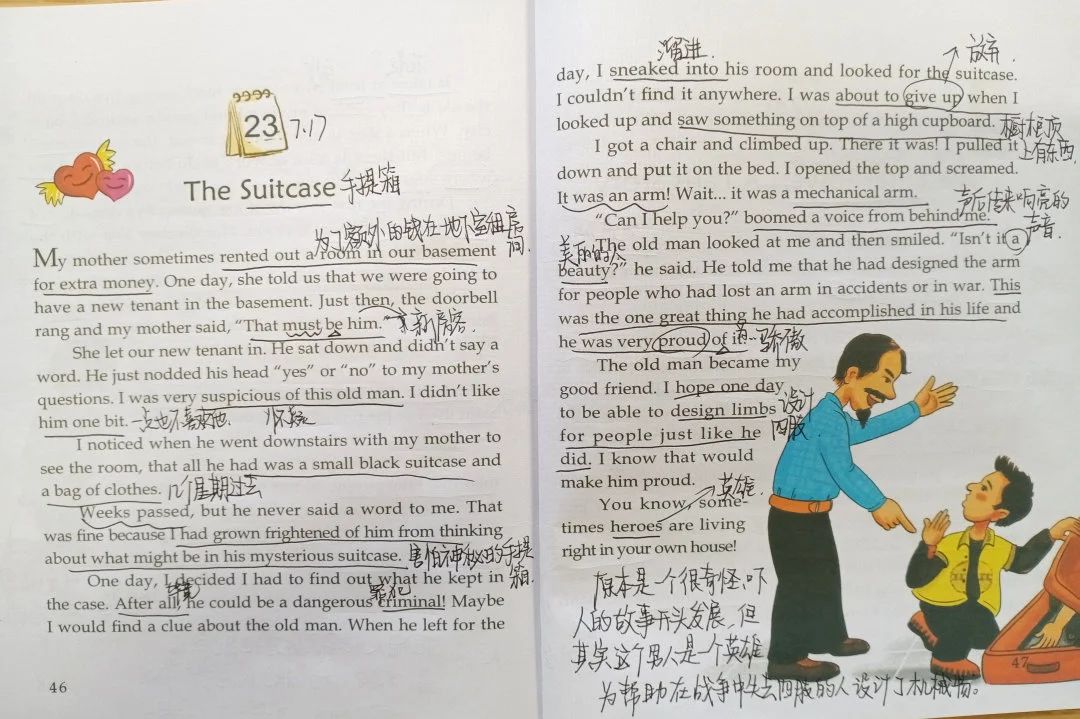 23 7.17
The Suitcase 手提箱
为了额外的钱在地下室租房间.
My mother sometimes rented out a room in our basement
for extra money. One day, she told us that we were going to
have a new tenant in the basement. Just then, the doorbell
rang and my mother said, "That must be him." 新房客.
She let our new tenant in. He sat down and didn't say a
word. He just nodded his head "yes" or "no" to my mother's
questions. I was very suspicious of this old man. I didn't like
him one bit. 一点也不喜欢他. 怀疑
I noticed when he went downstairs with my mother to
see the room, that all he had was a small black suitcase and
a bag of clothes. 几个星期过去
Weeks passed, but he never said a word to me. That
was fine because I had grown frightened of him from thinking
about what might be in his mysterious suitcase. 害怕神秘的手提箱.
One day, I decided I had to find out what he kept in
毕竟 罪犯
the case. After all, he could be a dangerous criminal! Maybe
I would find a clue about the old man. When he left for the
46
溜进. 放弃.
day, I sneaked into his room and looked for the suitcase.
I couldn't find it anywhere. I was about to give up when I
looked up and saw something on top of a high cupboard. 橱柜顶上有东西.
I got a chair and climbed up. There it was! I pulled it
down and put it on the bed. I opened the top and screamed.
It was an arm! Wait... it was a mechanical arm.
"Can I help you?" boomed a voice from behind me. 声后传来响亮的声音.
The old man looked at me and then smiled. "Isn't it a
美丽的人
beauty?" he said. He told me that he had designed the arm
for people who had lost an arm in accidents or in war. This
was the one great thing he had accomplished in his life and
he was very proud of it. 骄傲
The old man became my
good friend. I hope one day
to be able to design limbs 设计四肢.
for people just like he
did. I know that would
make him proud.
You know, some- 英雄.
times heroes are living
right in your own house!
原本是一个很奇怪,吓
人的故事开头发展,但
其实这个男人是一个英雄
为帮助在战争中失去四肢的人设计了机械物。
47